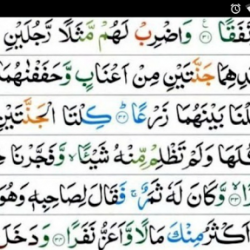 تَفَقًا ﴿۳۱﴾ وَاضْرِبْ لَهُمْ مَّثَلًا رَّجُلَيْنِ
دِهِمَا جَنَّتَيْنِ مِنْ اَعْنَابٍ وَّحَفَفْنٰهُمَا
لْنَا بَيْنَهُمَا زَرْعًا ﴿۳۲﴾ كِلْتَا الْجَنَّتَيْنِ
كُلَهَا وَلَمْ تَظْلِمْ مِّنْهُ شَيْـًٔا وَّفَجَّرْنَا
رًا ﴿۳۳﴾ وَّكَانَ لَهٗ ثَمَرٌ فَقَالَ لِصَاحِبِهٖ وَهُوَ
كْثَرُ مِنْكَ مَالًا وَّاَعَزُّ نَفَرًا ﴿۳۴﴾ وَدَخَلَ